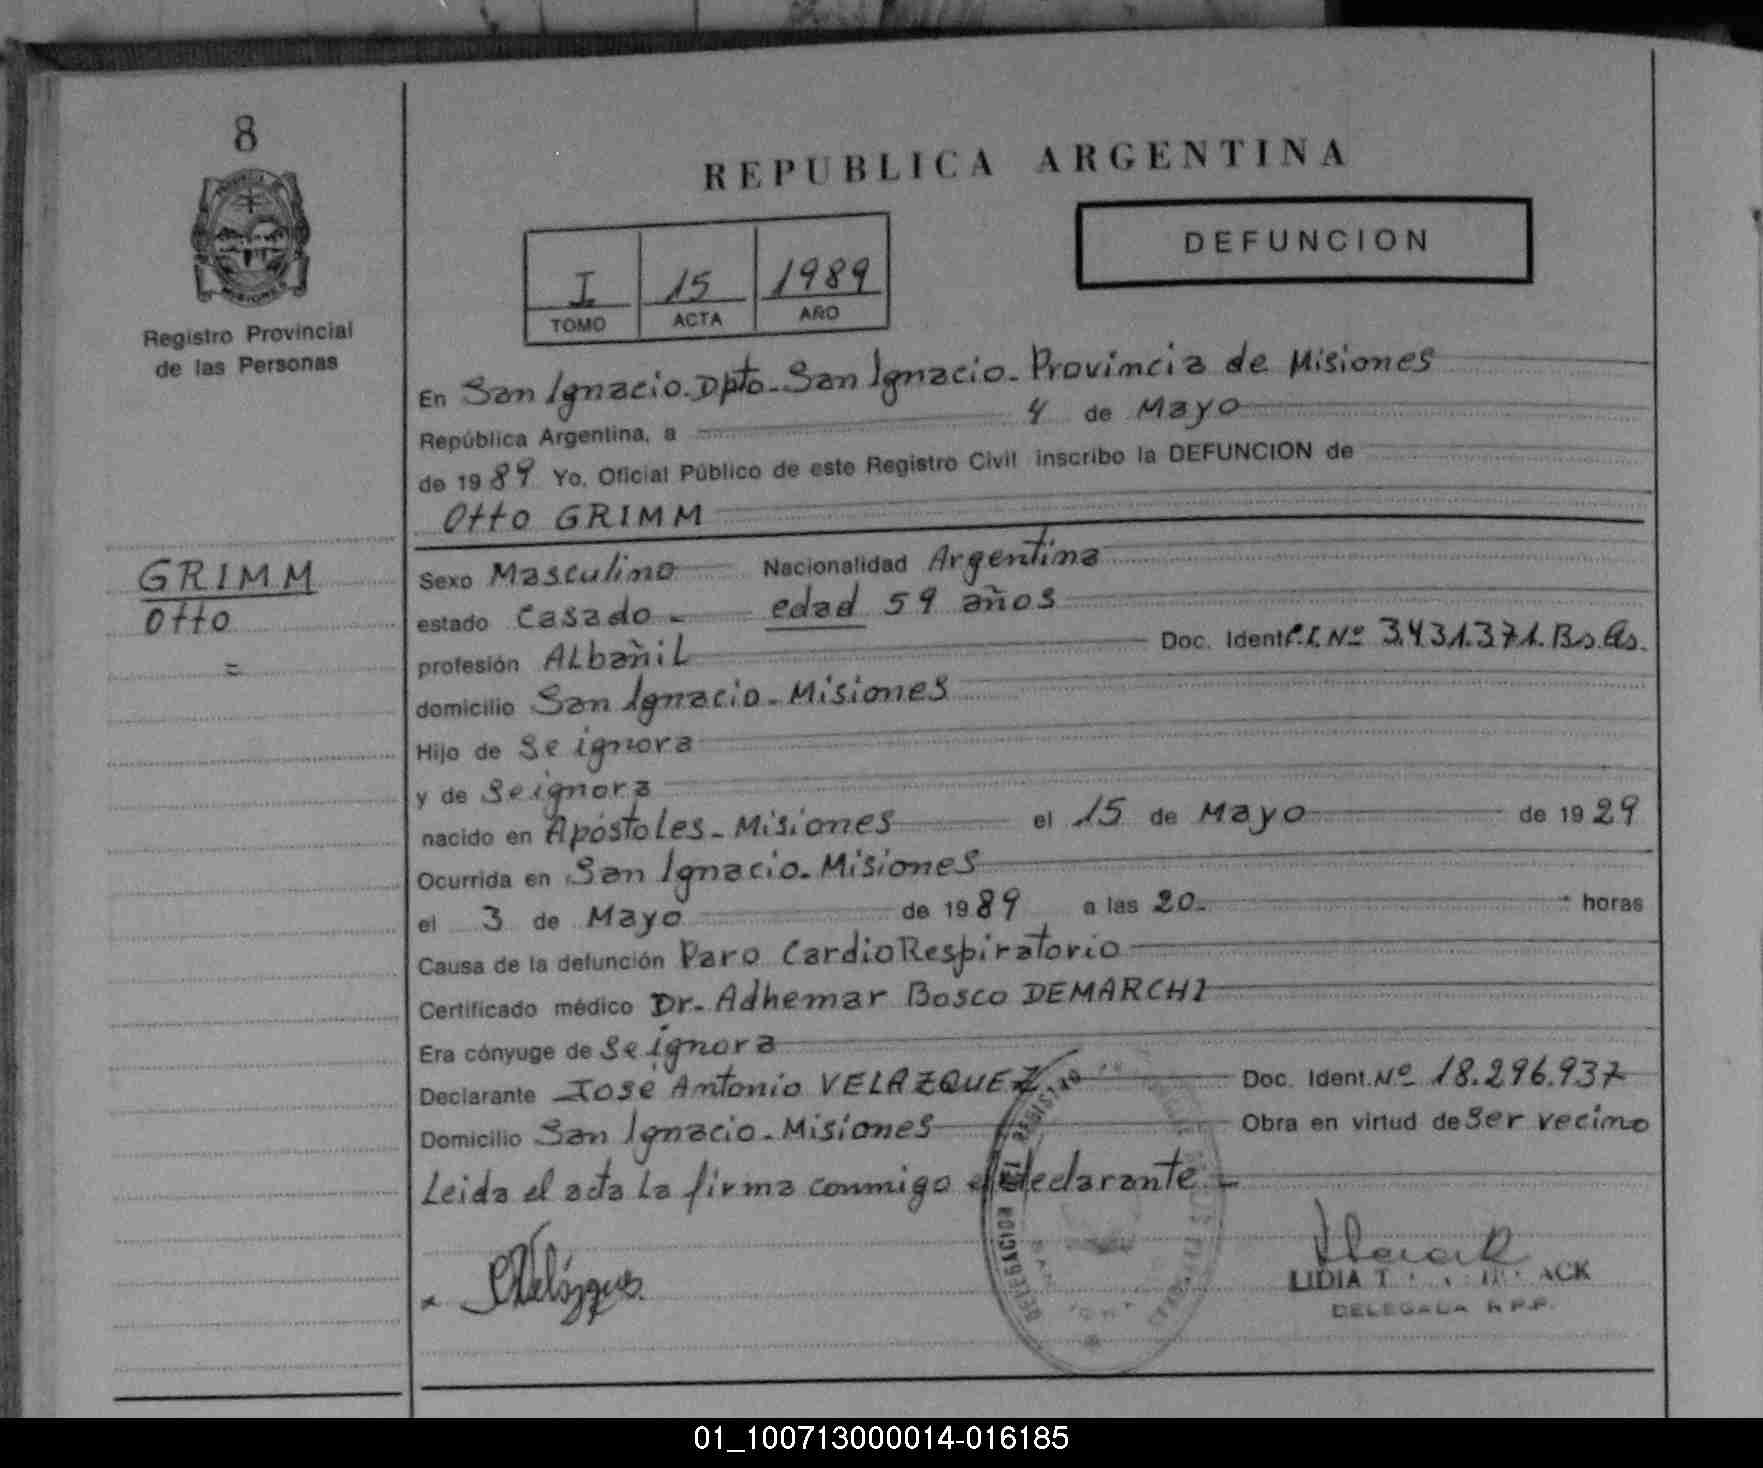 8
MISIONES
Registro Provincial
de las Personas
GRIMM
Otto
=
REPUBLICA ARGENTINA
I 15 1989
TOMO ACTA AÑO
DEFUNCION
En San Ignacio. Dpto. San Ignacio. Provincia de Misiones
República Argentina, a 4 de Mayo
de 1989 Yo, Oficial Público de este Registro Civil inscribo la DEFUNCION de
Otto GRIMM
Sexo Masculino Nacionalidad Argentina
estado Casado - edad 59 años
profesión ALbañiL Doc. Ident. C.I. Nº 3.431.371. Bs. As.
domicilio San Ignacio - Misiones
Hijo de Se ignora
y de Se ignora
nacido en Apóstoles - Misiones el 15 de Mayo de 1929
Ocurrida en San Ignacio. Misiones
el 3 de Mayo de 1989 a las 20. horas
Causa de la defunción Paro CardioRespiratorio
Certificado médico Dr. Adhemar Bosco DEMARCHI
Era cónyuge de Se ignora
Declarante José Antonio VELAZQUEZ Doc. Ident. Nº 18.296.937
Domicilio San Ignacio - Misiones Obra en virtud de Ser vecino
Leida el acta La firma conmigo el declarante -
DELEGACION DEL REGISTRO
LIDIA
DELEGADA R.P.P.
01_100713000014-016185